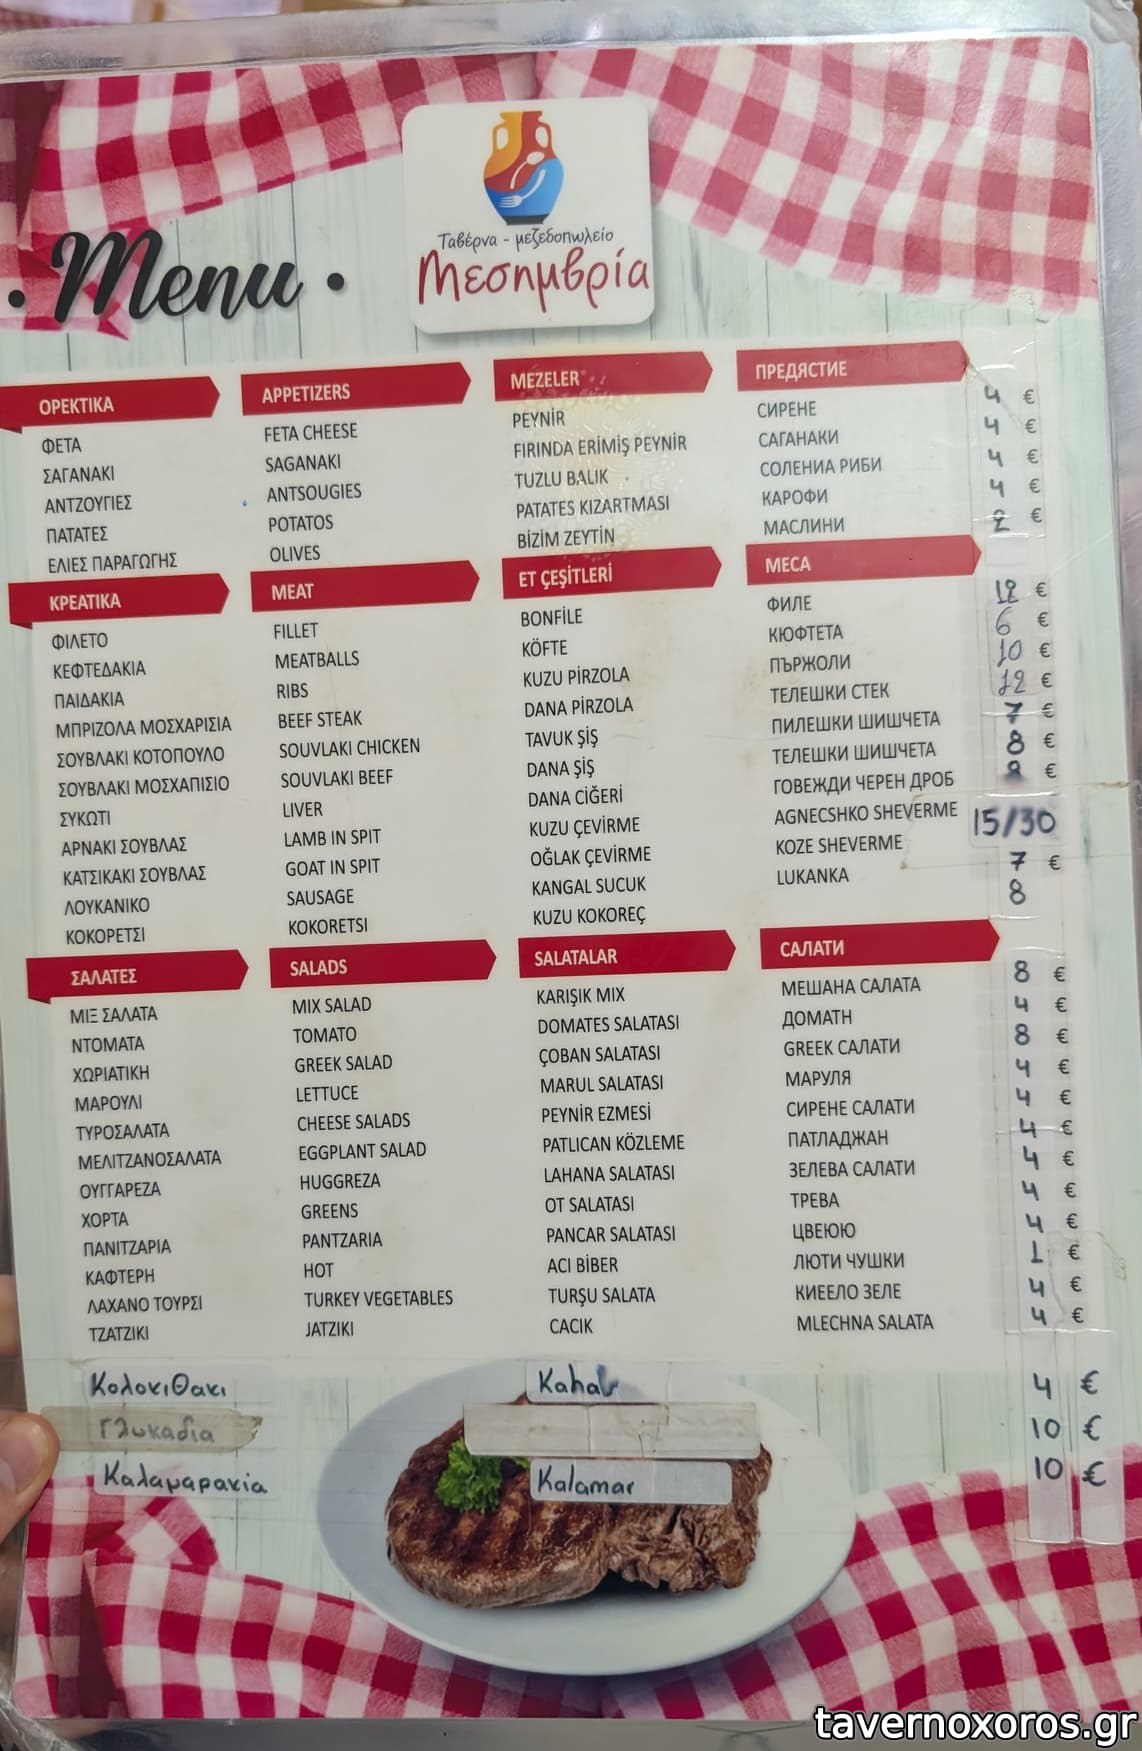 Ταβέρνα - μεζεδοπωλείο
Μεσημβρία
• Menu •
ΟΡΕΚΤΙΚΑ
ΦΕΤΑ
ΣΑΓΑΝΑΚΙ
ΑΝΤΖΟΥΓΙΕΣ
ΠΑΤΑΤΕΣ
ΕΛΙΕΣ ΠΑΡΑΓΩΓΗΣ
ΚΡΕΑΤΙΚΑ
ΦΙΛΕΤΟ
ΚΕΦΤΕΔΑΚΙΑ
ΠΑΙΔΑΚΙΑ
ΜΠΡΙΖΟΛΑ ΜΟΣΧΑΡΙΣΙΑ
ΣΟΥΒΛΑΚΙ ΚΟΤΟΠΟΥΛΟ
ΣΟΥΒΛΑΚΙ ΜΟΣΧΑΠΙΣΙΟ
ΣΥΚΩΤΙ
ΑΡΝΑΚΙ ΣΟΥΒΛΑΣ
ΚΑΤΣΙΚΑΚΙ ΣΟΥΒΛΑΣ
ΛΟΥΚΑΝΙΚΟ
ΚΟΚΟΡΕΤΣΙ
ΣΑΛΑΤΕΣ
ΜΙΞ ΣΑΛΑΤΑ
ΝΤΟΜΑΤΑ
ΧΩΡΙΑΤΙΚΗ
ΜΑΡΟΥΛΙ
ΤΥΡΟΣΑΛΑΤΑ
ΜΕΛΙΤΖΑΝΟΣΑΛΑΤΑ
ΟΥΓΓΑΡΕΖΑ
ΧΟΡΤΑ
ΠΑΝΙΤΖΑΡΙΑ
ΚΑΦΤΕΡΗ
ΛΑΧΑΝΟ ΤΟΥΡΣΙ
ΤΖΑΤΖΙΚΙ
APPETIZERS
FETA CHEESE
SAGANAKI
ANTSOUGIES
POTATOS
OLIVES
MEAT
FILLET
MEATBALLS
RIBS
BEEF STEAK
SOUVLAKI CHICKEN
SOUVLAKI BEEF
LIVER
LAMB IN SPIT
GOAT IN SPIT
SAUSAGE
KOKORETSI
SALADS
MIX SALAD
TOMATO
GREEK SALAD
LETTUCE
CHEESE SALADS
EGGPLANT SALAD
HUGGREZA
GREENS
PANTZARIA
HOT
TURKEY VEGETABLES
JATZIKI
MEZELER
PEYNİR
FIRINDA ERİMİŞ PEYNİR
TUZLU BALIK
PATATES KIZARTMASI
BİZİM ZEYTİN
ET ÇEŞİTLERİ
BONFİLE
KÖFTE
KUZU PİRZOLA
DANA PİRZOLA
TAVUK ŞİŞ
DANA ŞİŞ
DANA CİĞERİ
KUZU ÇEVİRME
OĞLAK ÇEVİRME
KANGAL SUCUK
KUZU KOKOREÇ
SALATALAR
KARIŞIK MIX
DOMATES SALATASI
ÇOBAN SALATASI
MARUL SALATASI
PEYNİR EZMESİ
PATLICAN KÖZLEME
LAHANA SALATASI
OT SALATASI
PANCAR SALATASI
ACI BİBER
TURŞU SALATA
CACIK
ПРЕДЯСТИЕ
СИРЕНЕ 4 €
САГАНАКИ 4 €
СОЛЕНИА РИБИ 4 €
КАРОФИ 4 €
МАСЛИНИ 2 €
МЕСА
ФИЛЕ 12 €
КЮФТЕТА 6 €
ПЪРЖОЛИ 10 €
ТЕЛЕШКИ СТЕК 12 €
ПИЛЕШКИ ШИШЧЕТА 7 €
ТЕЛЕШКИ ШИШЧЕТА 8 €
ГОВЕЖДИ ЧЕРЕН ДРОБ €
AGNECSHKO SHEVERME 15/30
KOZE SHEVERME
LUKANKA 7 €
8
САЛАТИ
МЕШАНА САЛАТА 8 €
ДОМАТН 4 €
GREEK САЛАТИ 8 €
МАРУЛЯ 4 €
СИРЕНЕ САЛАТИ 4 €
ПАТЛАДЖАН 4 €
ЗЕЛЕВА САЛАТИ 4 €
ТРЕВА 4 €
ЦВЕЮЮ 4 €
ЛЮТИ ЧУШКИ 1 €
КИЕЕЛО ЗЕЛЕ 4 €
MLECHNA SALATA 4 €
Κολοκιθακι Kahal 4 €
Γλυκαδια 10 €
Καλαμαρακια Kalamar 10 €
tavernoxoros.gr